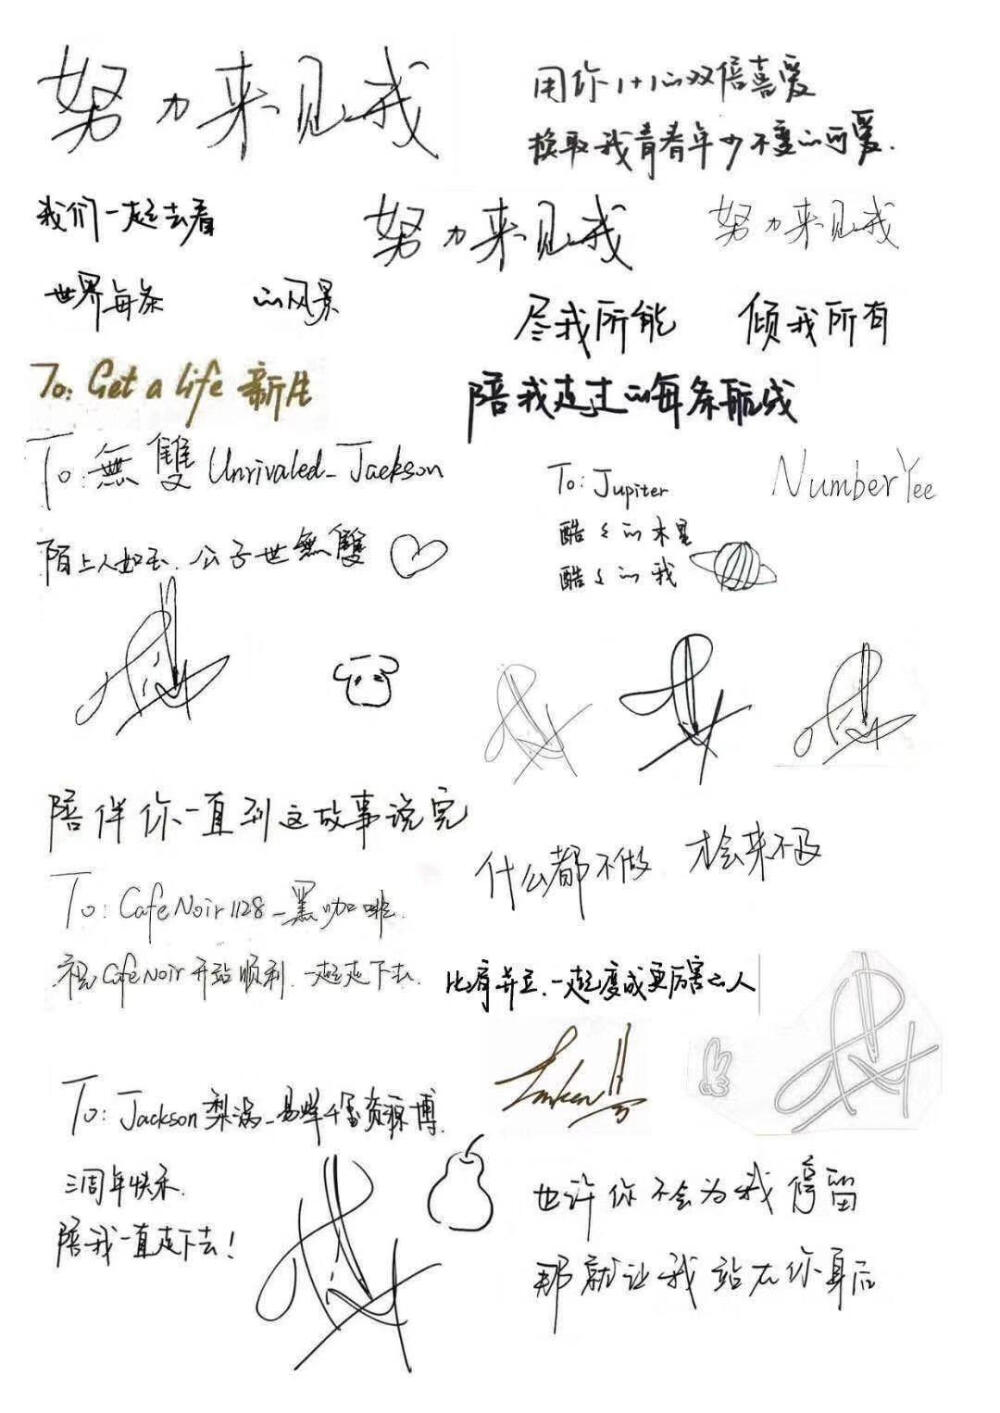 努力来见我
用你1+1的双倍喜爱
换取我青春年少不变的可爱.
我们一起去看
世界每条 的风景
努力来见我
努力来见我
尽我所能 倾我所有
To: Get a life 新生
陪我走过的每条航线
To: 無雙 Unrivaled-Jackson
陌上人如玉, 公子世無雙
To: Jupiter
酷々的木星
酷々的我
NumberYee
陪伴你一直到这故事说完
什么都不做 才会来不及
To: CafeNoir1128_黑咖啡.
祝CafeNoir开站顺利, 一起走下去.
比肩并立, 一起变成更厉害的人
To: Jackson梨涡_易烊千玺资源博.
三周年快乐.
陪我一直走下去!
也许你不会为我停留
那就让我站在你身后